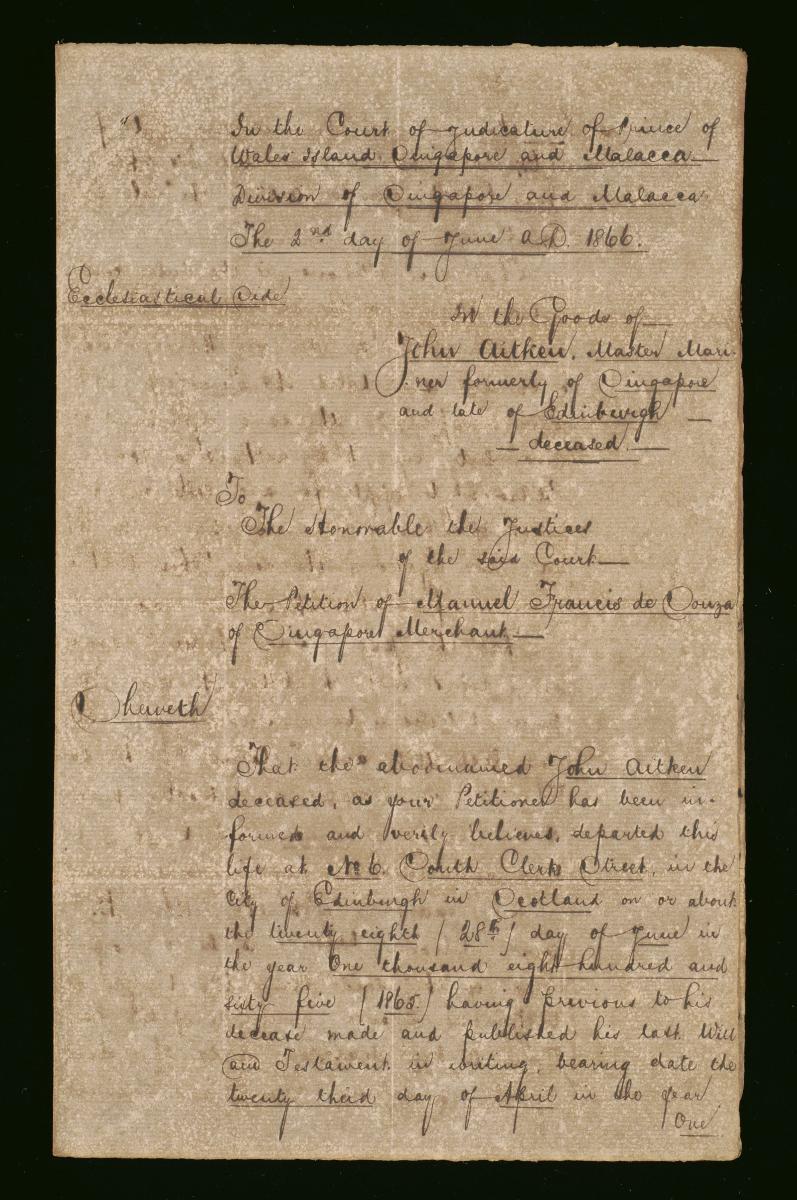 In the Court of Judicature of Prince of
Wales Island Singapore and Malacca
Division of Singapore and Malacca
The 2nd day of June A.D. 1866.
Ecclesiastical Side
In the Goods of
John Aitken, Master Mari-
ner formerly of Singapore
and late of Edinburgh
deceased
To
The Honorable the Justices
of the said Court
The Petition of Manuel Francis de Souza
of Singapore Merchant
Sheweth
That the abovenamed John Aitken
deceased, as your Petitioner has been in-
formed and verily believes, departed this
life at No 6. South Clerk Street, in the
City of Edinburgh in Scotland on or about
the twenty eighth (28th) day of June in
the year One thousand eight hundred and
sixty five (1865) having previous to his
decease made and published his last Will
and Testament in writing, bearing date the
twenty third day of April in the year
One